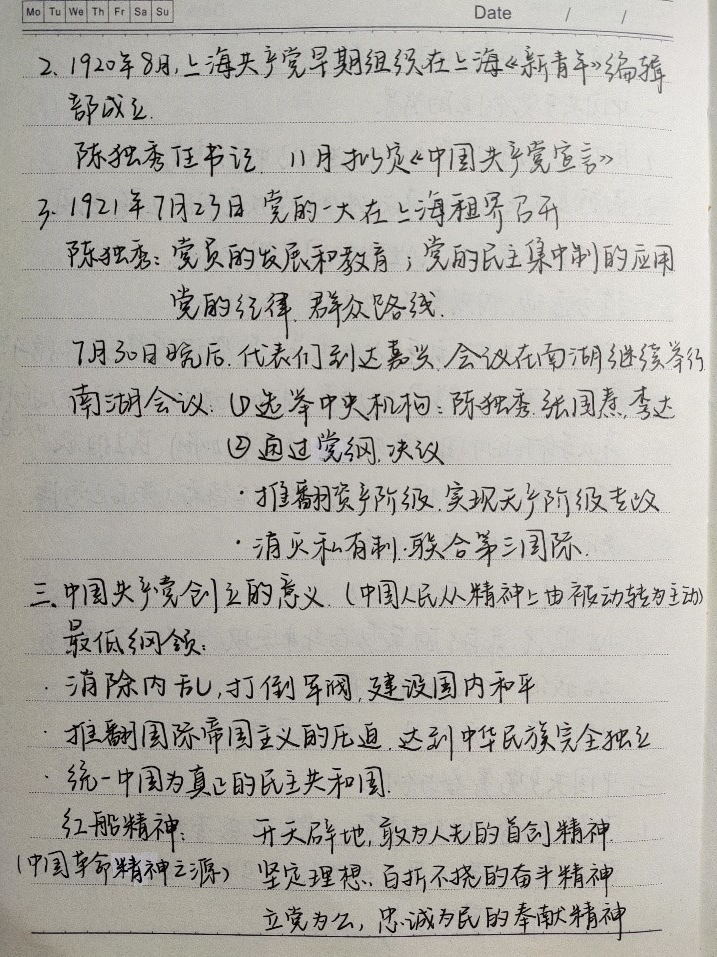 Mo Tu We Th Fr Sa Su
Date / /
2、1920年8月,上海共产党早期组织在上海《新青年》编辑
部成立.
陈独秀任书记. 11月拟定《中国共产党宣言》
3、1921年7月23日 党的一大在上海租界召开
陈独秀:党员的发展和教育;党的民主集中制的应用
党的纪律、群众路线.
7月30日晚后.代表们到达嘉兴.会议在南湖继续举行
南湖会议:①选举中央机构:陈独秀.张国焘.李达
②通过党纲、决议
·推翻资产阶级.实现无产阶级专政
·消灭私有制.联合第三国际.
三、中国共产党创立的意义.(中国人民从精神上由被动转为主动)
最低纲领:
·消除内乱,打倒军阀,建设国内和平
·推翻国际帝国主义的压迫.达到中华民族完全独立
·统一中国为真正的民主共和国.
红船精神: 开天辟地,敢为人先的首创精神.
(中国革命精神之源) 坚定理想、百折不挠的奋斗精神
立党为公,忠诚为民的奉献精神